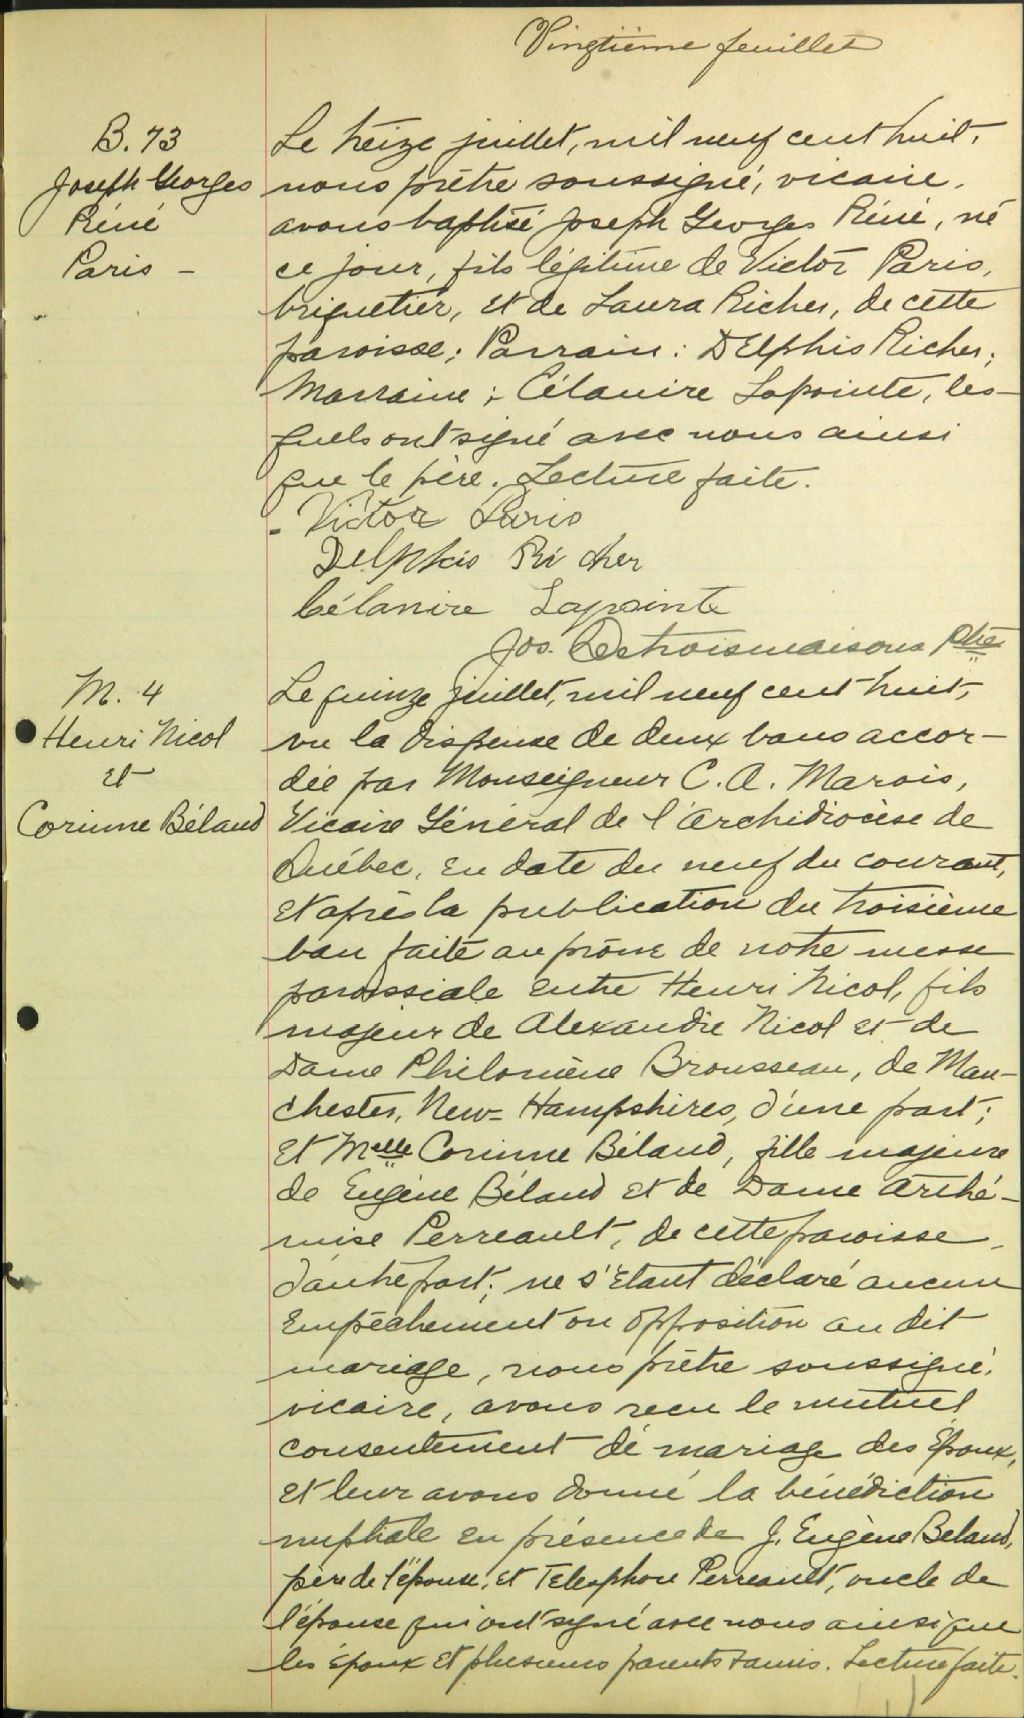 Vingtième feuillet
B. 73
Joseph Georges
Réné
Paris -
Le treize juillet, mil neuf cent huit,
nous prêtre soussigné, vicaire,
avons baptisé Joseph Georges Réné, né
ce jour, fils légitime de Victor Paris,
briquetier, et de Laura Richer, de cette
paroisse; Parrain: Delphis Richer;
Marraine; Célanire Lapointe, les-
quels ont signé avec nous ainsi
que le père. Lecture faite.
Victor Paris
Delphis Richer
Célanire Lapointe
Jos. Destroismaisons Ptre
M. 4
Henri Nicol
et
Corinne Béland
Le quinze juillet, mil neuf cent huit,
vu la dispense de deux bans accor-
dée par Monseigneur C. A. Marois,
Vicaire Général de l'Archidiocèse de
Québec, en date du neuf du courant,
et après la publication du troisième
ban faite au prône de notre messe
paroissiale entre Henri Nicol, fils
majeur de Alexandre Nicol et de
Dame Philomène Brousseau, de Man-
chester, New-Hampshires, d'une part;
et Melle Corinne Béland, fille majeure
de Eugène Béland et de Dame Arthé-
mise Perreault, de cette paroisse,
d'autre part; ne s'étant déclaré aucun
empêchement ou opposition au dit
mariage, nous prêtre soussigné,
vicaire, avons recu le mutuel
consentement de mariage des époux,
et leur avons donné la bénédiction
nuptiale en présence de J. Eugène Beland,
père de l'épouse, et Telesphore Perreault, oncle de
l'épouse qui ont signé avec nous ainsi que
les époux et plusieurs parents & amis. Lecture faite.